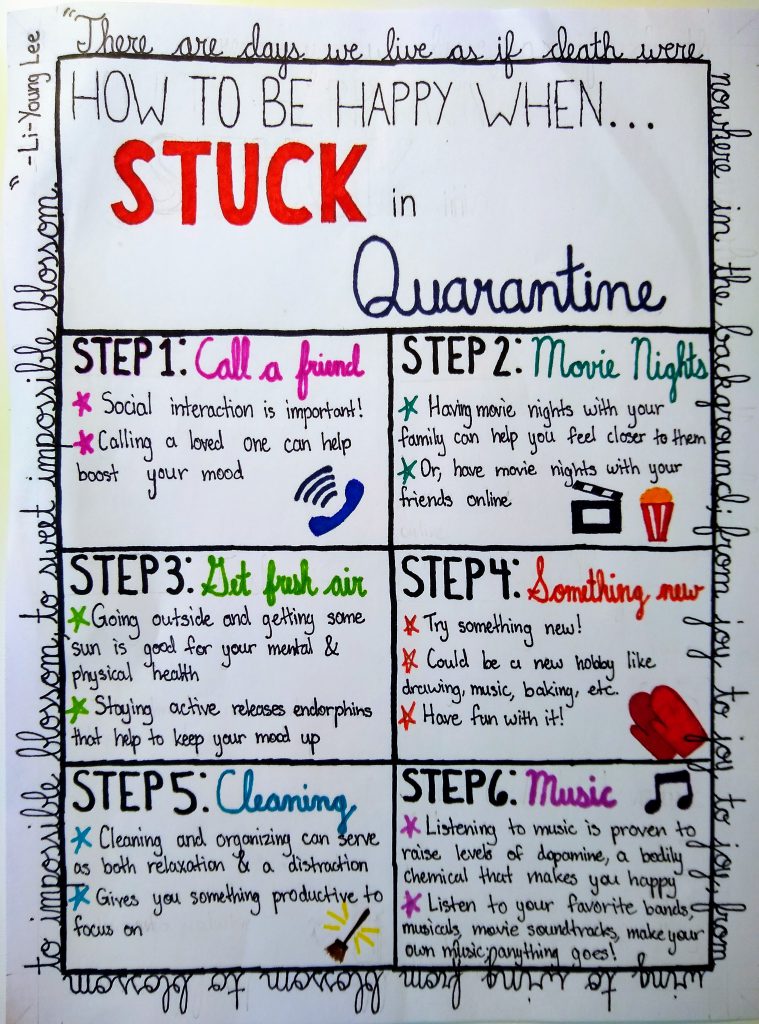 "There are days we live as if death were
nowhere in the background; from joy to joy to joy, from
wing to wing from blossom to blossom
to impossible blossom, to sweet impossible blossom."
-Li-Young Lee
HOW TO BE HAPPY WHEN...
STUCK in
Quarantine
STEP 1: Call a friend
Social interaction is important!
Calling a loved one can help
boost your mood
STEP 2: Movie Nights
Having movie nights with your
family can help you feel closer to them
Or, have movie nights with your
friends online
STEP 3: Get fresh air
Going outside and getting some
sun is good for your mental &
physical health
Staying active releases endorphins
that help to keep your mood up
STEP 4: Something new
Try something new!
Could be a new hobby like
drawing, music, baking, etc.
Have fun with it!
STEP 5: Cleaning
Cleaning and organizing can serve
as both relaxation & a distraction
Gives you something productive to
focus on
STEP 6: Music
Listening to music is proven to
raise levels of dopamine, a bodily
chemical that makes you happy
Listen to your favorite bands,
musicals, movie soundtracks, make your
own music, anything goes!